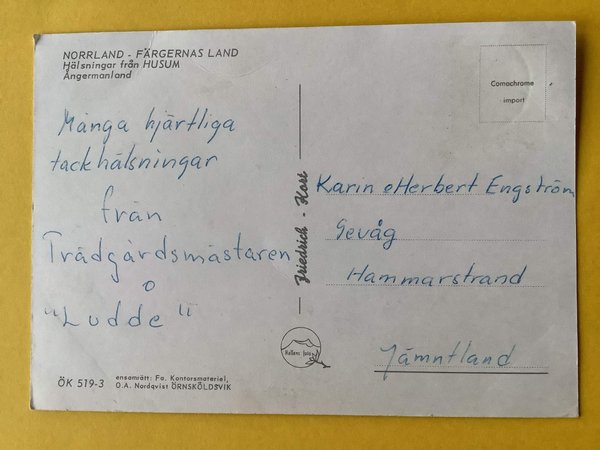 NORRLAND - FÄRGERNAS LAND
Hälsningar från HUSUM
Ångermanland
Comachrome
import
Många hjärtliga
tackhälsningar
från
Trädgårdsmästaren
o
"Ludde"
Friedrich - Kost
Karin o Herbert Engström
Gevåg
Hammarstrand
Jämntland
ÖK 519-3
ensamrätt: Fa. Kontorsmateriel,
O.A. Nordqvist ÖRNSKÖLDSVIK